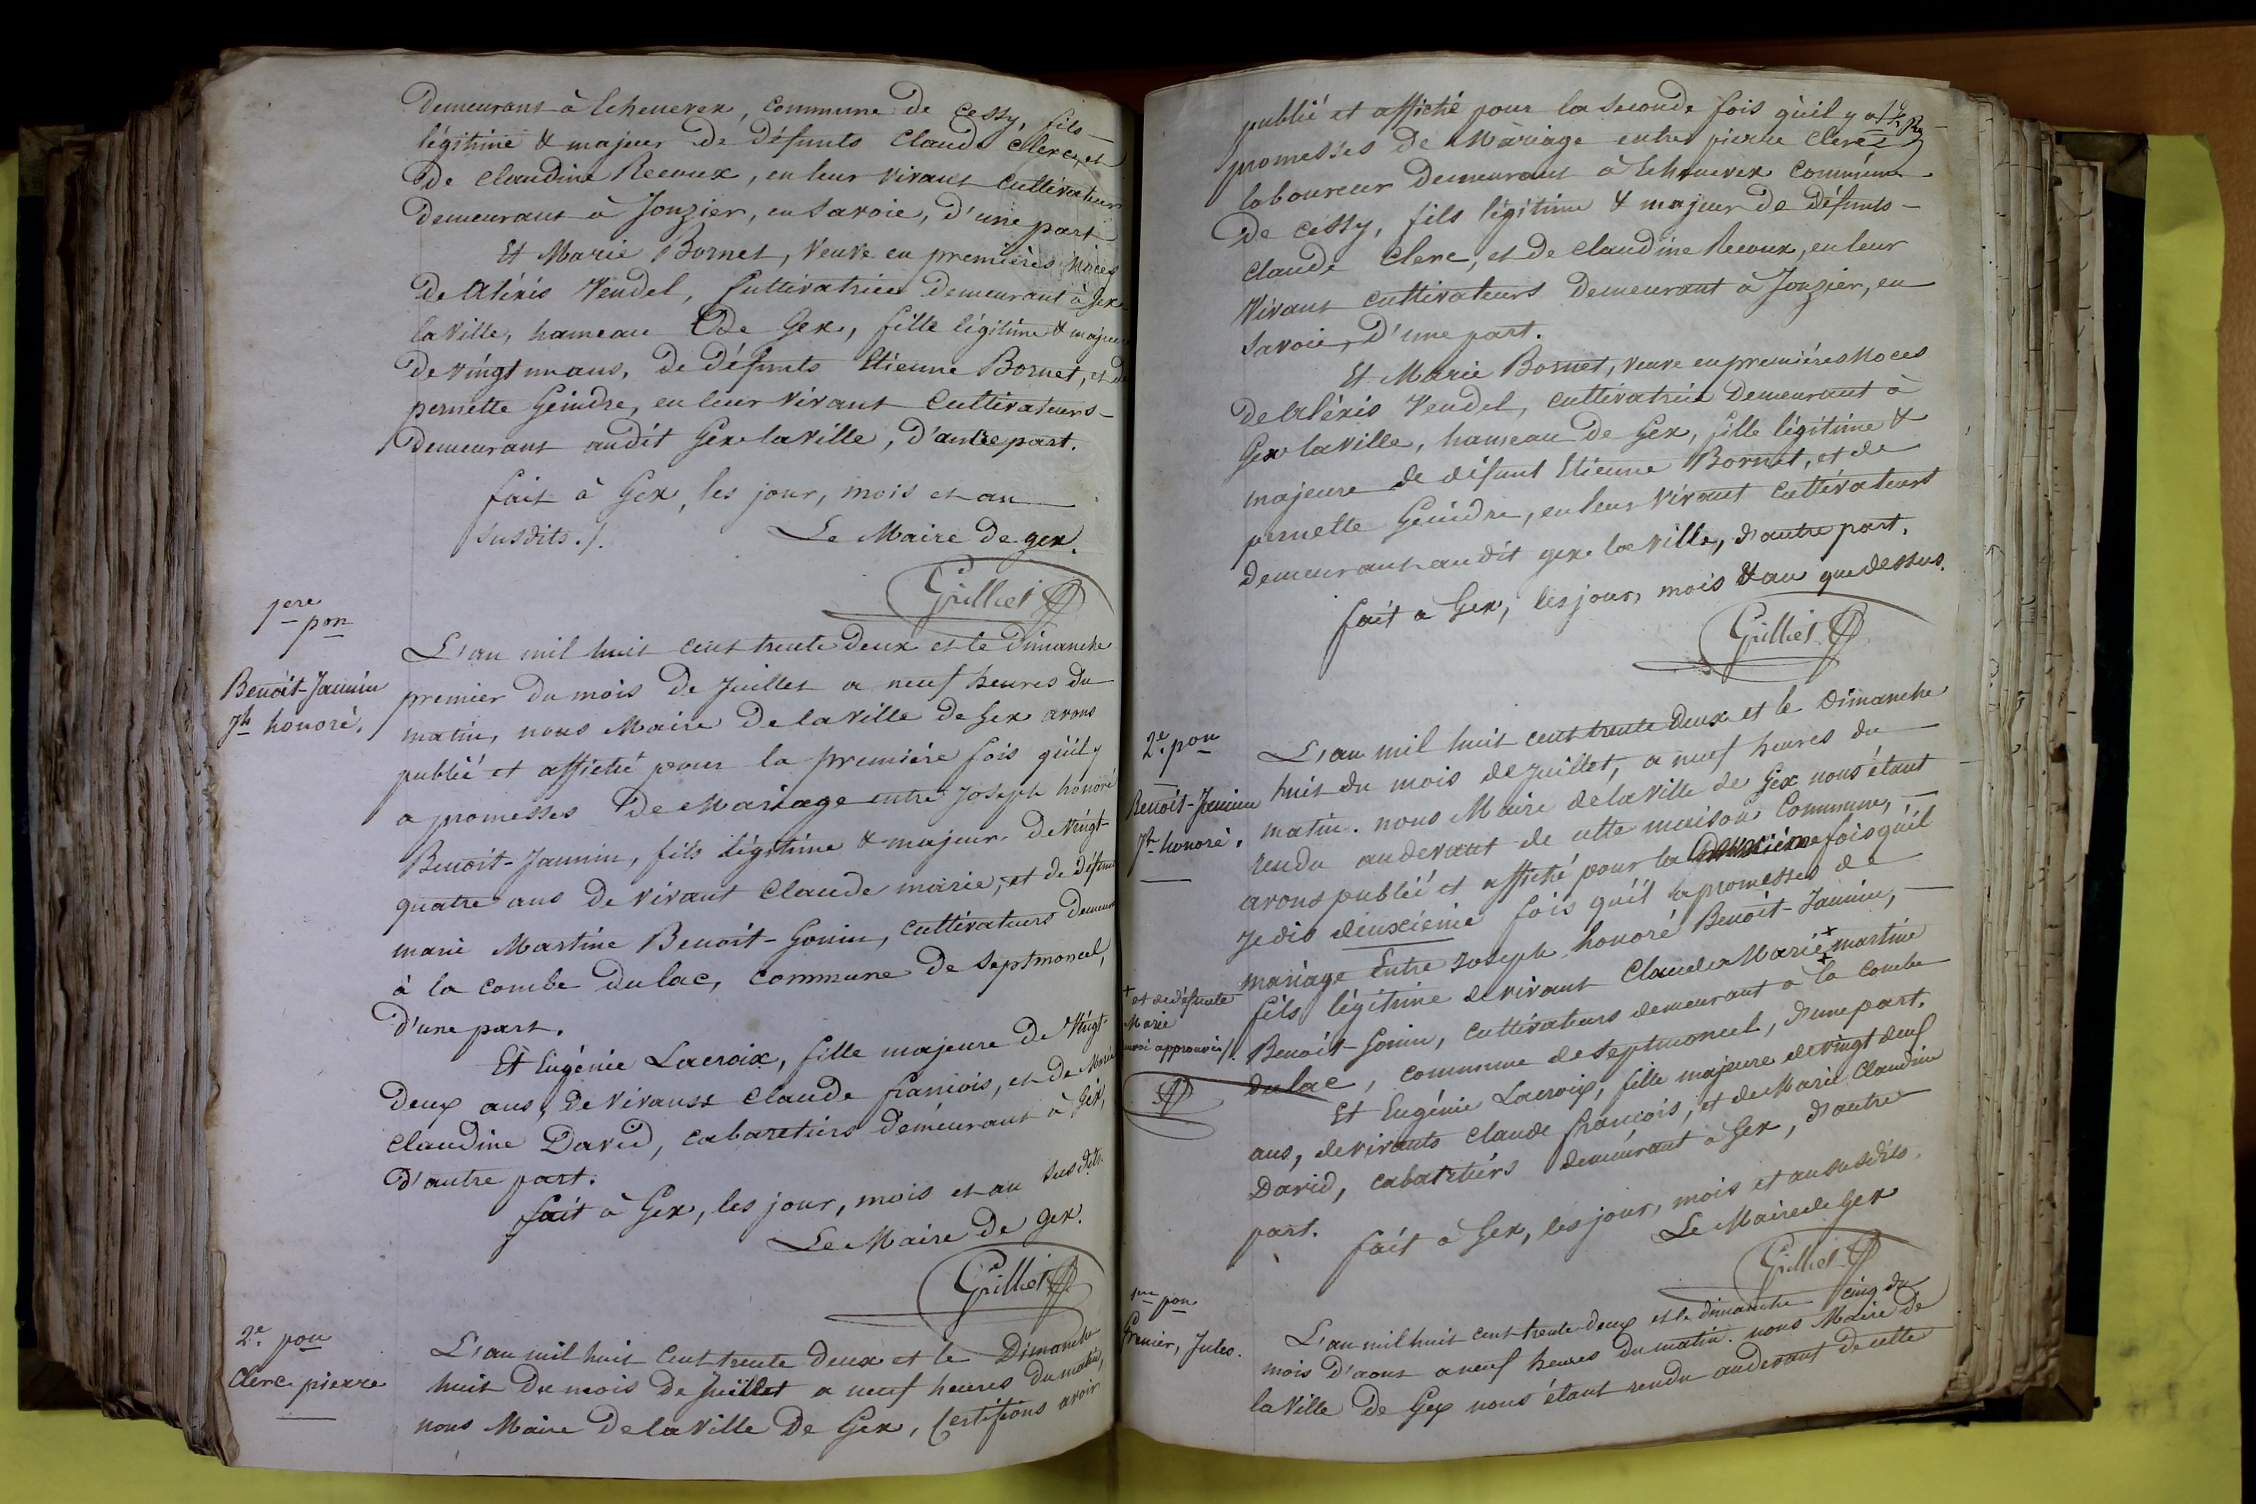 Demeurant à Echenevex, commune de Cessy, fils
légitime & majeur de défunts Claude Clerc, et
de Claudine Recoux, en leur vivant cultivateurs
demeurant à Jonzier, en Savoie, d'une part
Et Marie Bornet, veuve en premières noces
de Aléxis Vendel, Cultivatrice demeurant à Gex
la ville, hameau de Gex, fille légitime & majeure
de vingt un ans, de défunts Etienne Bornet, et de
pernette Geindre, en leur vivant Cultivateurs
demeurant audit Gex la ville, d'autre part.
fait à Gex, les jour, mois et an
susdits ./.
Le Maire de gex.
Grilliet
1ere pon
Benoit-Jannin
Jh honoré.
L'an mil huit cent trente deux et le Dimanche
premier du mois de Juillet a neuf heures du
matin, nous Maire de la ville de Gex avons
publié et affiché pour la premiére fois qu'il y
a promesses de Mariage entre Joseph honoré
Benoit-Jannin, fils légitime & majeur de vingt-
quatre ans de vivant Claude marie, et de défunte
marie Martine Benoit-Gonin, cultivateurs demeurant
à la combe du lac, commune de Septmoncel,
d'une part.
Et Eugénie Lacroix, fille majeure de vingt-
deux ans, de vivants Claude francois, et de Marie
Claudine David, cabaretiers demeurant à Gex,
d'autre part.
fait à Gex, les jour, mois et an susdits
Le Maire de gex.
Grilliet
2e. pon
Clerc pierre
L'an mil huit cent trente deux et le Dimanche
huit du mois de Juillet a neuf heures du matin,
nous Maire de la ville de Gex, Certifions avoir
publié et affiché pour la seconde fois qu'il y a
promesses de Mariage entre pierre Clerc
laboureur demeurant à Echenevex commune
de Cessy, fils légitime & majeur de défunts
Claude Clerc, et de Claudine Recoux, en leur
vivant cultivateurs demeurant à Jonzier, en
Savoie, d'une part.
Et Marie Bornet, veuve en premiéres Noces
de Aléxis Vendel, cultivatrice demeurant à
Gex la ville, hameau de Gex, fille légitime &
majeure de défunt Etienne Bornet, et de
pernette Geindre, en leur vivant cultivateurs
demeurant audit gex la ville, d'autre part.
fait à Gex, les jour, mois & an que dessus.
Grilliet
2e. pon
Benoit-Jannin
Jh honoré.
L'an mil huit cent trente deux et le Dimanche
huit du mois de Juillet, a neuf heures du
matin. nous Maire de la ville de Gex nous étant
rendu au devant de cette maison Commune,
avons publié et affiché pour la deuxième fois qu'il
Je dis deuxième fois qu'il a promesses de
mariage Entre Joseph honoré Benoit-Jannin,
fils légitime de vivant Claude Marie + martine
+ et de défunte
Marie
Benoit-Gonin, cultivateurs demeurant à la combe
du lac, commune de Septmoncel, d'une part.
Et Eugénie Lacroix, fille majeure de vingt deux
ans, de vivants Claude francois, et de Marie Claudine
David, cabaretiérs demeurant à Gex, d'autre
part.
fait à Gex, les jour, mois et an susdits.
Le Maire de Gex
Grilliet
1ere pon
Grenier, Jules.
L'an mil huit cent trente deux et le dimanche cinq du
mois d'aout a neuf heures du matin. nous Maire de
la Ville de Gex nous étant rendu au devant de cette